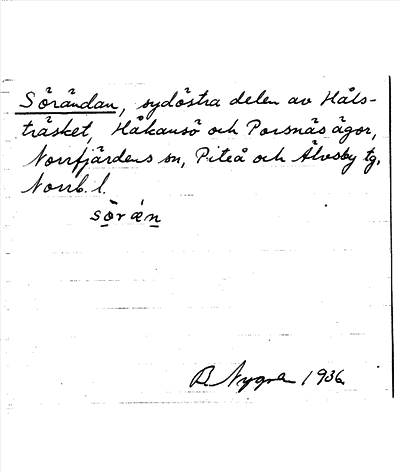 Sörändan, sydöstra delen av Håls-
träsket, Håkansö och Porsnäs ägor,
Norrfjärdens sn, Piteå och Älvsby tg,
Norrb. l.
sörän
B. Nygren 1936